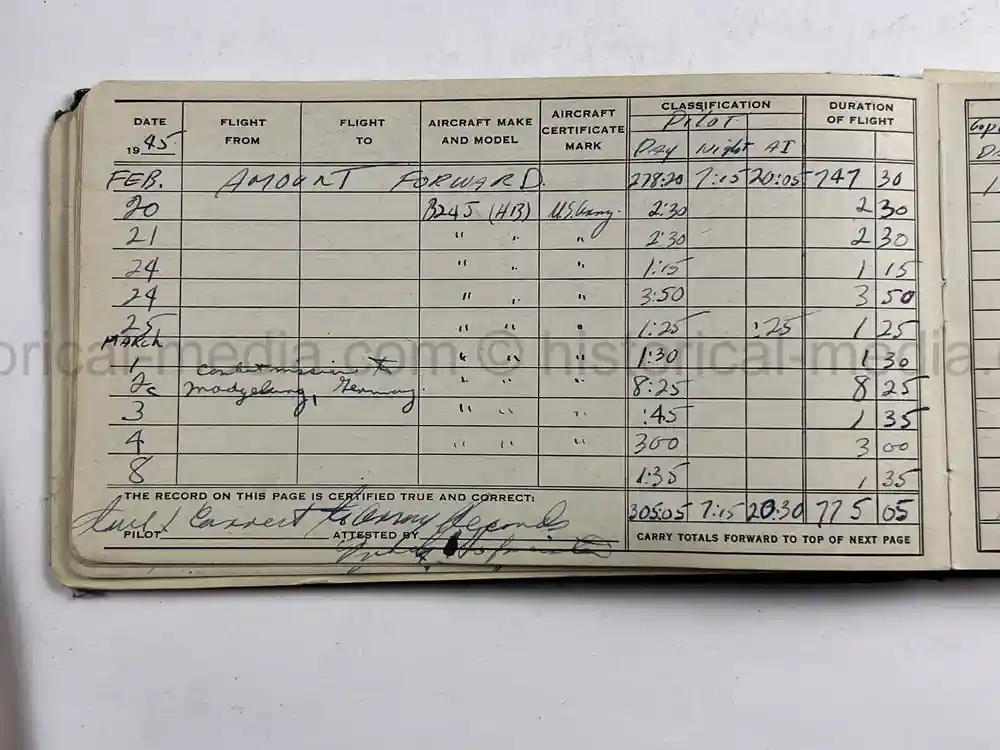 DATE FLIGHT FLIGHT AIRCRAFT MAKE AIRCRAFT CLASSIFICATION DURATION
1945 FROM TO AND MODEL CERTIFICATE MARK Pilot OF FLIGHT
Day Night AI
FEB. AMOUNT FORWARD. 278:20 7:15 20:05 747 30
20 B24J (HB) U.S. Army. 2:30 2 30
21 " " " 2:30 2 30
24 " " " 1:15 1 15
24 " " " 3:50 3 50
25 " " " 1:25 :25 1 25
MARCH
1 " " " 1:30 1 30
combat mission to
2c Madgeburg, Germany. " " " 8:25 8 25
3 " " " :45 1 35
4 " " " 300 3 00
8 1:35 1 35
THE RECORD ON THIS PAGE IS CERTIFIED TRUE AND CORRECT:
305:05 7:15 20:30 775 05
Correct Army Records
PILOT ATTESTED BY CARRY TOTALS FORWARD TO TOP OF NEXT PAGE
historical-media.com © historical-media.